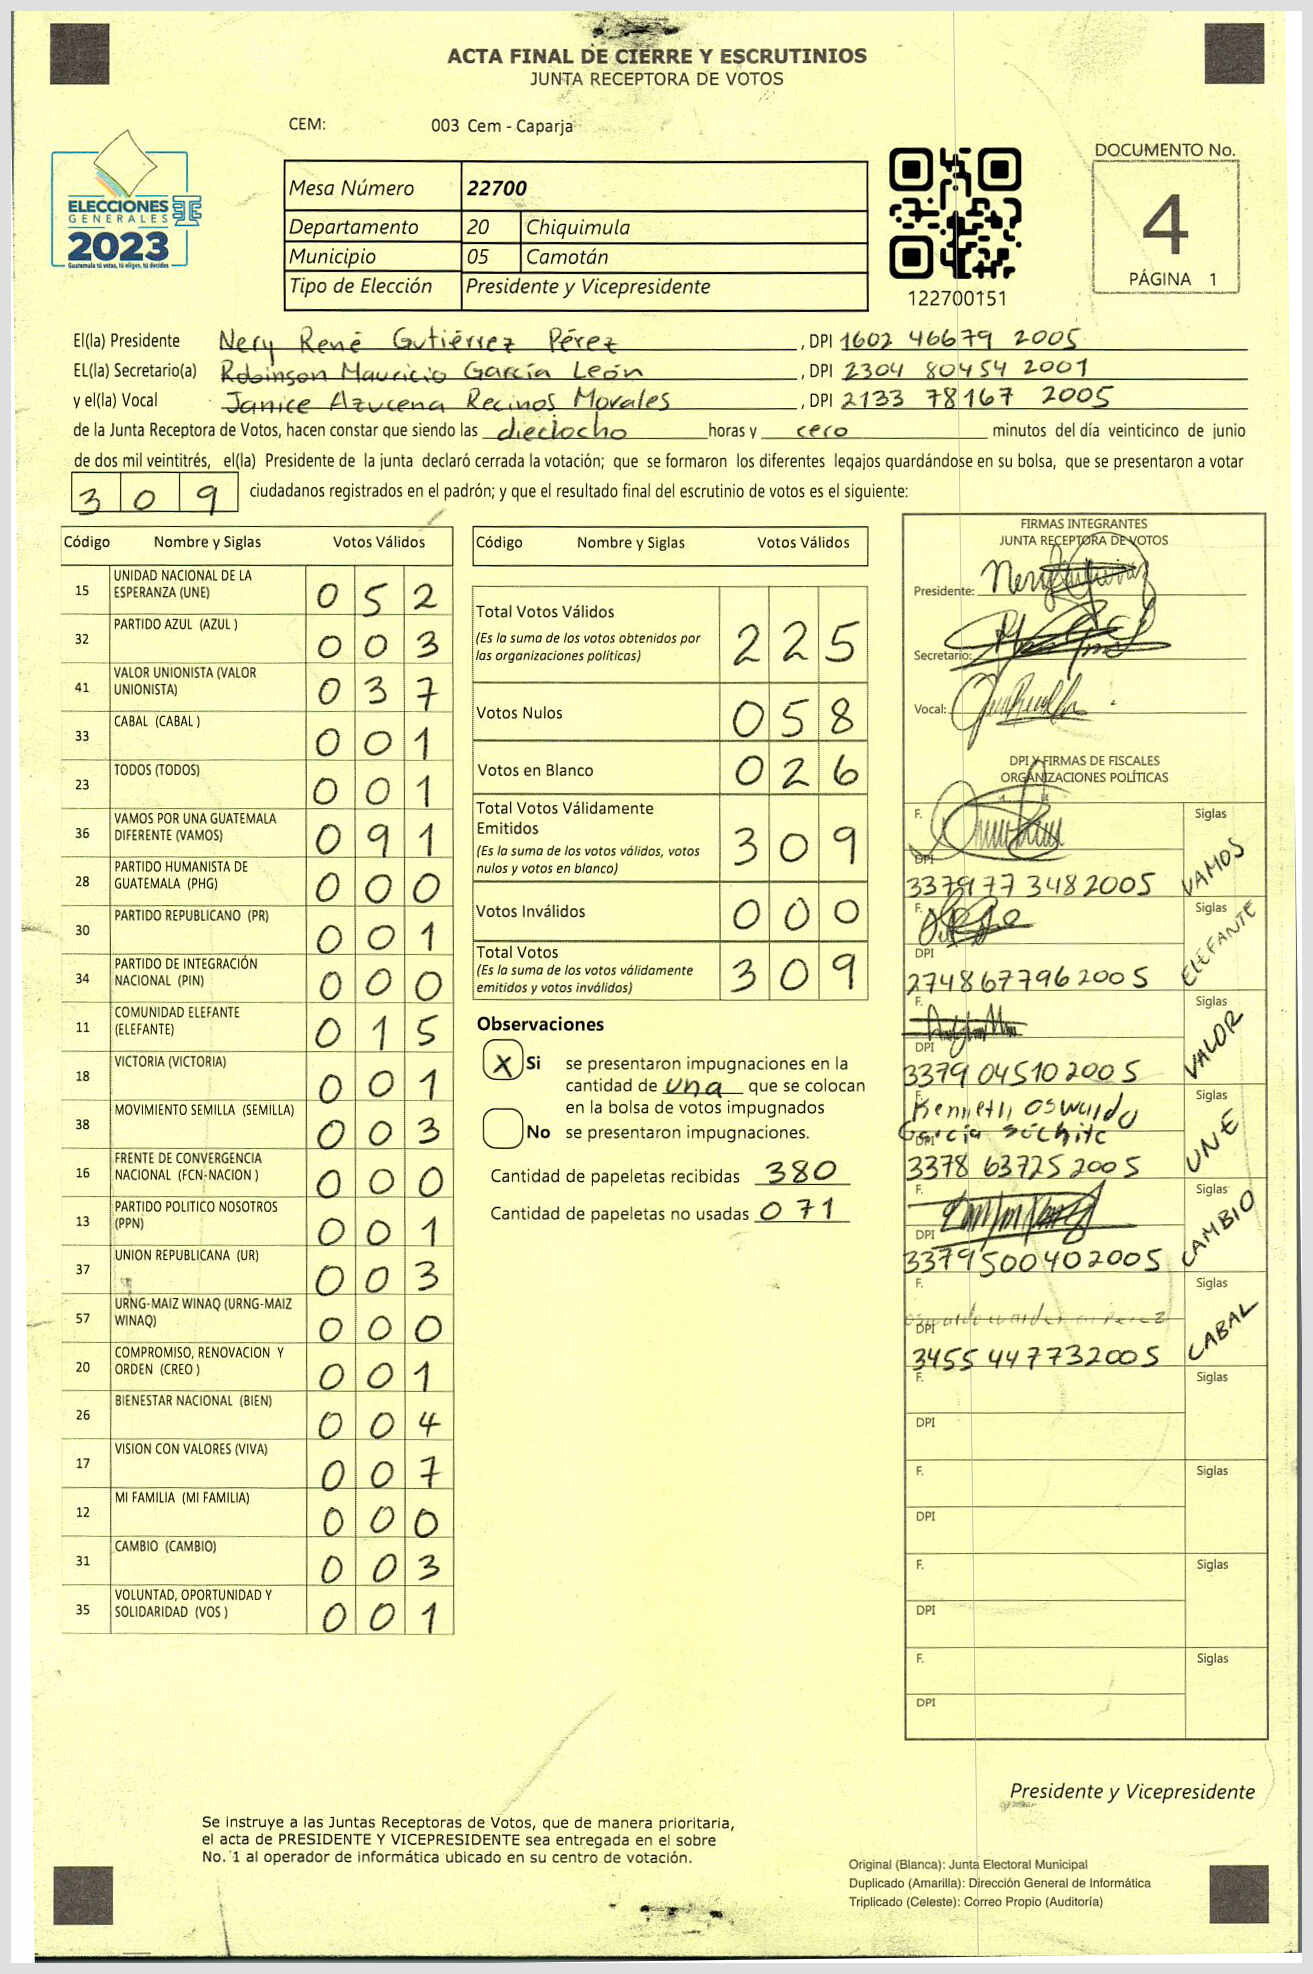 ACTA FINAL DE CIERRE Y ESCRUTINIOS
JUNTA RECEPTORA DE VOTOS
CEM: 003 Cem - Caparja
ELECCIONES
GENERALES
2023
Guatemala tú votas, tú eliges, tú decides
Mesa Número 22700
Departamento 20 Chiquimula
Municipio 05 Camotán
Tipo de Elección Presidente y Vicepresidente
122700151
DOCUMENTO No.
4
PÁGINA 1
El(la) Presidente Nery René Gutiérrez Pérez, DPI 1602 46679 2005
EL(la) Secretario(a) Robinson Mauricio García León, DPI 2304 80454 2001
y el(la) Vocal Janice Azucena Recinos Morales, DPI 2133 78167 2005
de la Junta Receptora de Votos, hacen constar que siendo las dieciocho horas y cero minutos del día veinticinco de junio
de dos mil veintitrés, el(la) Presidente de la junta declaró cerrada la votación; que se formaron los diferentes legajos guardándose en su bolsa, que se presentaron a votar
309 ciudadanos registrados en el padrón; y que el resultado final del escrutinio de votos es el siguiente:
Código Nombre y Siglas Votos Válidos
15 UNIDAD NACIONAL DE LA ESPERANZA (UNE) 052
32 PARTIDO AZUL (AZUL ) 003
41 VALOR UNIONISTA (VALOR UNIONISTA) 037
33 CABAL (CABAL ) 001
23 TODOS (TODOS) 001
36 VAMOS POR UNA GUATEMALA DIFERENTE (VAMOS) 091
28 PARTIDO HUMANISTA DE GUATEMALA (PHG) 000
30 PARTIDO REPUBLICANO (PR) 001
34 PARTIDO DE INTEGRACIÓN NACIONAL (PIN) 000
11 COMUNIDAD ELEFANTE (ELEFANTE) 015
18 VICTORIA (VICTORIA) 001
38 MOVIMIENTO SEMILLA (SEMILLA) 003
16 FRENTE DE CONVERGENCIA NACIONAL (FCN-NACION ) 000
13 PARTIDO POLITICO NOSOTROS (PPN) 001
37 UNION REPUBLICANA (UR) 003
57 URNG-MAIZ WINAQ (URNG-MAIZ WINAQ) 000
20 COMPROMISO, RENOVACION Y ORDEN (CREO ) 001
26 BIENESTAR NACIONAL (BIEN) 004
17 VISION CON VALORES (VIVA) 007
12 MI FAMILIA (MI FAMILIA) 000
31 CAMBIO (CAMBIO) 003
35 VOLUNTAD, OPORTUNIDAD Y SOLIDARIDAD (VOS ) 001
Código Nombre y Siglas Votos Válidos
Total Votos Válidos 225
(Es la suma de los votos obtenidos por
las organizaciones políticas)
Votos Nulos 058
Votos en Blanco 026
Total Votos Válidamente
Emitidos 309
(Es la suma de los votos válidos, votos
nulos y votos en blanco)
Votos Inválidos 000
Total Votos 309
(Es la suma de los votos válidamente
emitidos y votos inválidos)
Observaciones
X Si se presentaron impugnaciones en la
cantidad de una que se colocan
en la bolsa de votos impugnados
No se presentaron impugnaciones.
Cantidad de papeletas recibidas 380
Cantidad de papeletas no usadas 071
FIRMAS INTEGRANTES
JUNTA RECEPTORA DE VOTOS
Presidente:
Secretario:
Vocal:
DPI Y FIRMAS DE FISCALES
ORGANIZACIONES POLÍTICAS
F. Siglas
DPI
3379 77 348 2005 VAMOS
F. Siglas
DPI
2748677962005 ELEFANTE
F. Siglas
DPI
3379 04510 2005 VALOR
F. Kenneth Oswaldo Siglas
DPI García Súchite
3378 63725 2005 UNE
F. Siglas
DPI
3379500402005 CAMBIO
F. Siglas
DPI
3455 447732005 CABAL
F. Siglas
DPI
F. Siglas
DPI
F. Siglas
DPI
F. Siglas
DPI
Presidente y Vicepresidente
Se instruye a las Juntas Receptoras de Votos, que de manera prioritaria,
el acta de PRESIDENTE Y VICEPRESIDENTE sea entregada en el sobre
No. 1 al operador de informática ubicado en su centro de votación.
Original (Blanca): Junta Electoral Municipal
Duplicado (Amarilla): Dirección General de Informática
Triplicado (Celeste): Correo Propio (Auditoría)